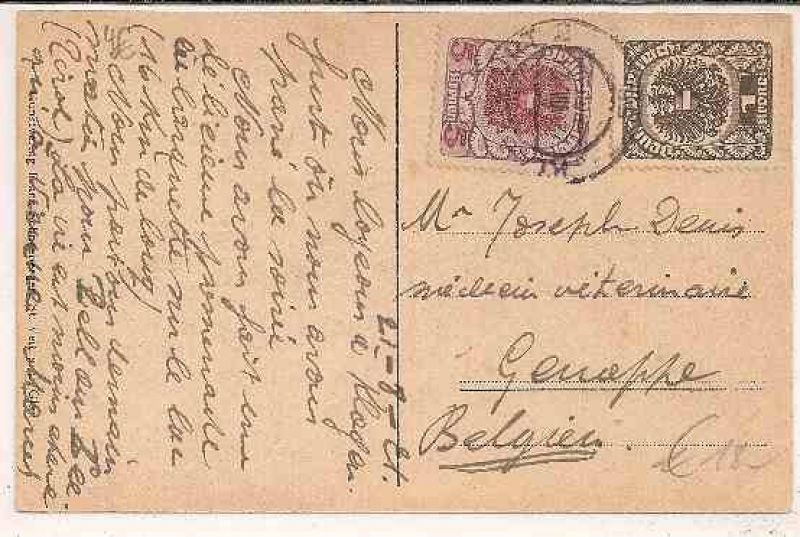 21-8-21.
Nous logeons à Klagen-
furt où nous avons
passé la soirée
Nous avons fait une
délicieuse promenade
en barquette sur le lac
(16 Km de long)
Nous partons demain
matin pour Zell am See
(Tirol) La vie est moins chère
Mr Joseph Denis
médecin vétérinaire
Genappe
Belgien
5 5
1